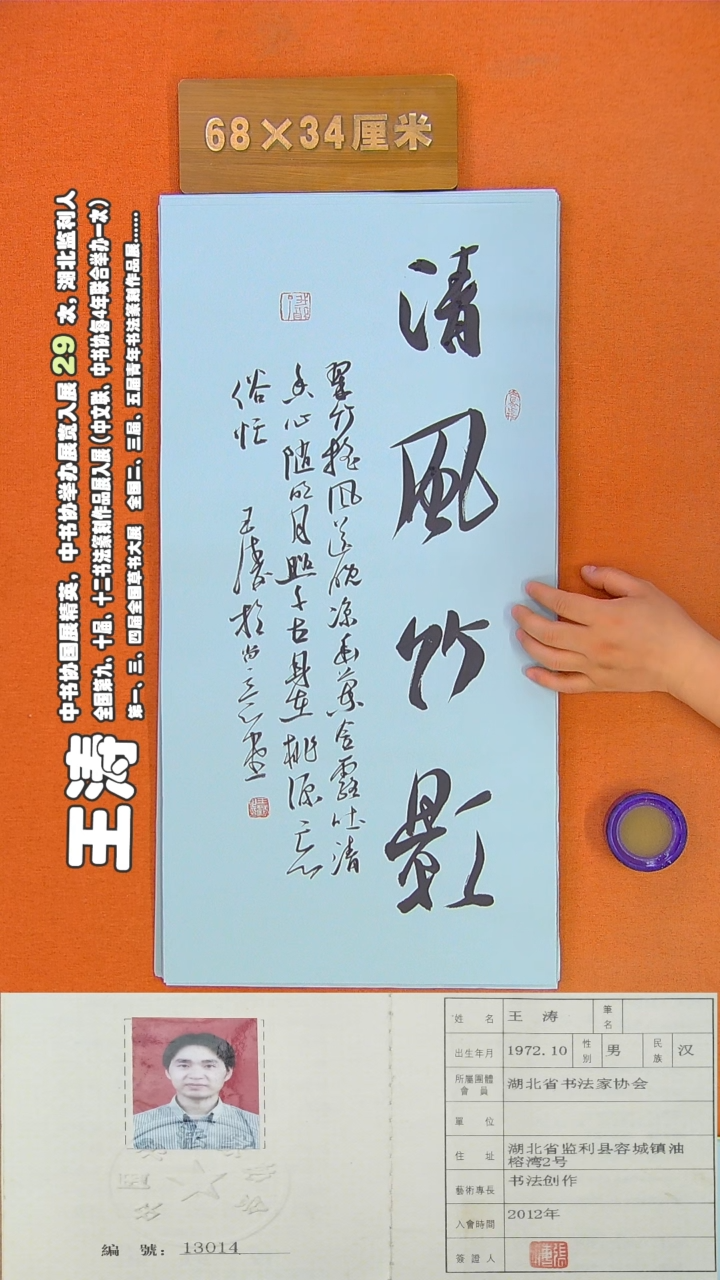 68×34厘米
清风竹影
翠竹摇风送晚凉幽兰含露吐清
香心随明月照千古身在桃源忘
俗忙 王涛于尚三石书
中书协国展精英，中书协举办展赛入展 29 次，湖北监利人
全国第九、十届、十二书法篆刻作品展入展（中文联、中书协督4年联合举办一次）
第一、三、四届全国草书大展 全国二、三届、五届青年书法篆刻作品展……
王涛
編 號：13014
姓 名 王 涛 筆名
出生年月 1972.10 性別 男 民族 汉
所屬團體會員 湖北省书法家协会
單 位
住 址 湖北省监利县容城镇油
榨湾2号
藝術專長 书法创作
入會時間 2012年
簽證人